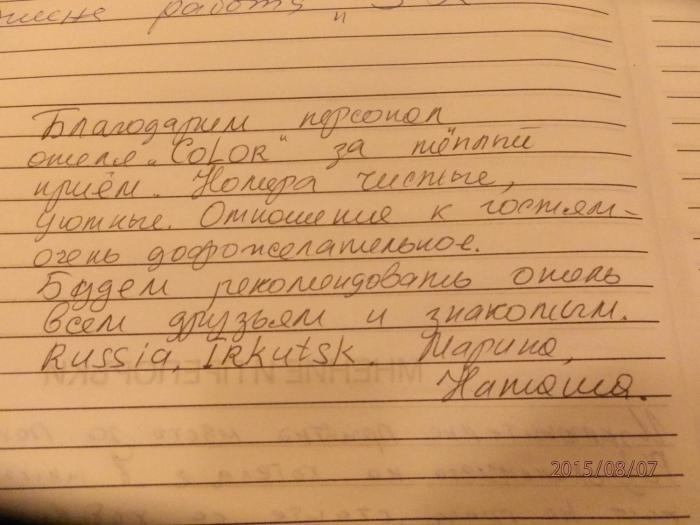 работа
Благодарим персонал
отеля „COLOR" за тёплый
приём. Номера чистые,
уютные. Отношение к гостям -
очень доброжелательное.
Будем рекомендовать отель
всем друзьям и знакомым.
Russia, Irkutsk Марина,
Наташа.
МНЕНИЕ И ПРЕПОРЪКИ
2015/08/07